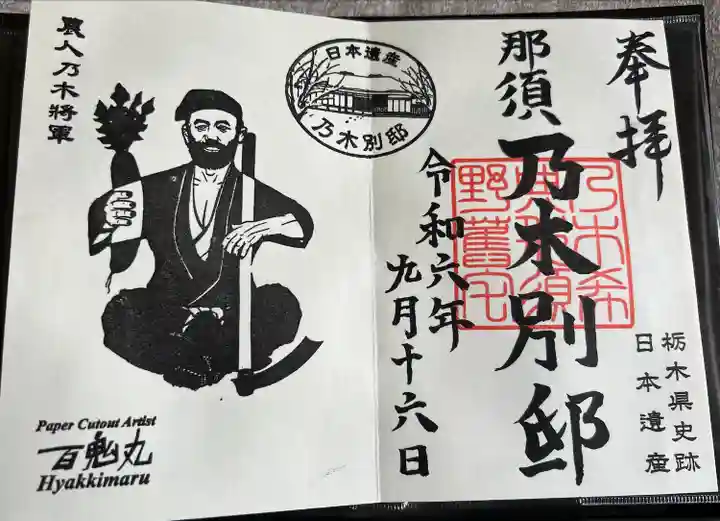 奉拝
那須乃木別邸
令和六年
九月十六日
栃木県史跡
日本遺産
日本遺産
乃木別邸
農人乃木將軍
Paper Cutout Artist
百鬼丸
Hyakkimaru